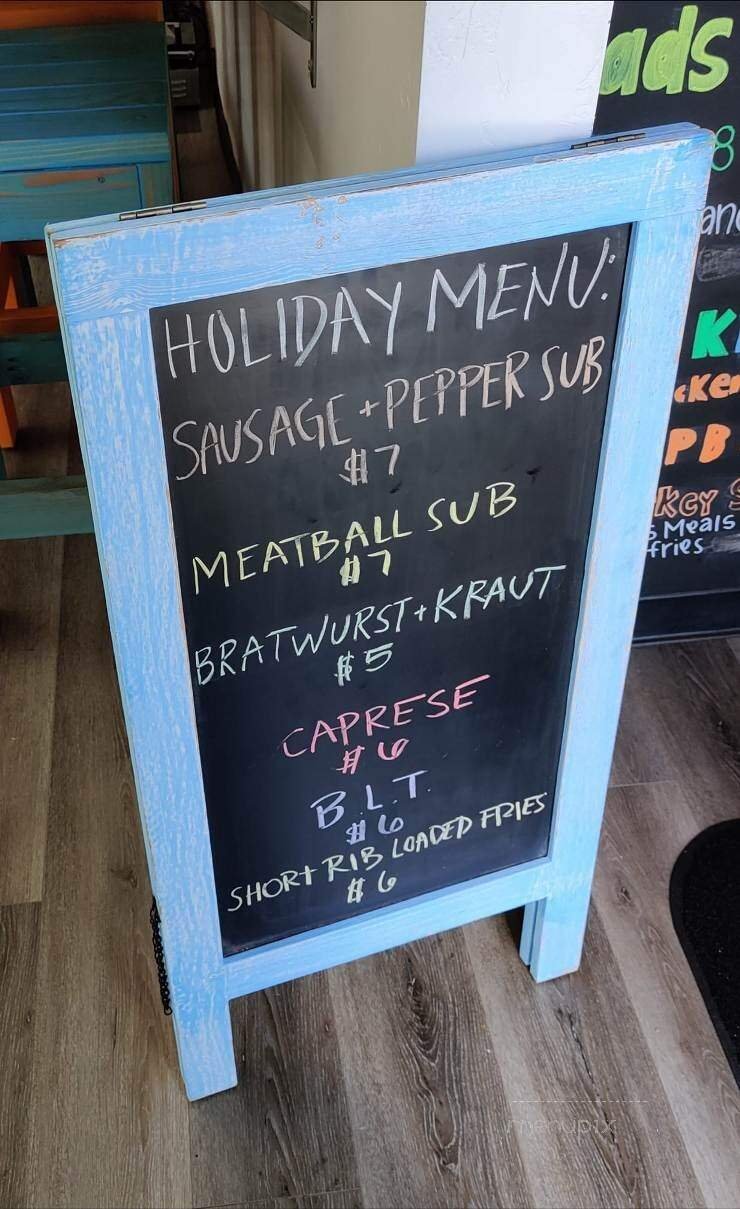 HOLIDAY MENU:
SAUSAGE + PEPPER SUB
$7
MEATBALL SUB
$7
BRATWURST + KRAUT
$5
CAPRESE
$6
B.L.T.
$6
SHORT RIB LOADED FRIES
$6
ads
8
PB
Meals
fries
menupix